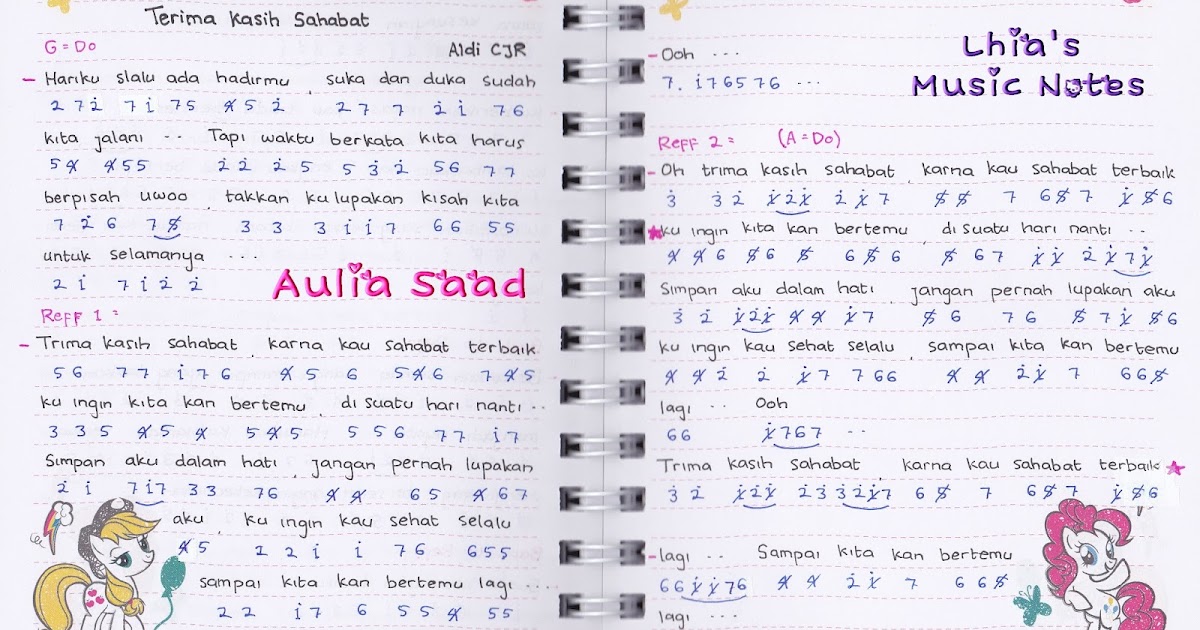 Terima Kasih Sahabat
G = Do
Aldi CJR
- Hariku slalu ada hadirmu , suka dan duka sudah
2 7 2̇ 7 i 7 5 4̸ 5 2̇ 2 7 7 2̇ i 7 6
kita jalani .. Tapi waktu berkata kita harus
5 4̸ 4̸ 5 5 2̇ 2̇ 2̇ 5 5 3̇ 2̇ 5 6 7 7
berpisah uwoo , takkan ku lupakan kisah kita
7 2̇ 6 7 5̸ 3 3 3 i i 7 6 6 5 5
untuk selamanya ...
2 i 7 i 2̇ 2̇
Aulia Saad
Reff 1 =
- Trima kasih sahabat , karna kau sahabat terbaik
5 6 7 7 i 7 6 4̸ 5 6 5 4̸ 6 7 4̸ 5
ku ingin kita kan bertemu , di suatu hari nanti ..
3 3 5 4̸ 5 4̸ 5 4̸ 5 5 5 6 7 7 i 7
Simpan aku dalam hati , jangan pernah lupakan
2̇ i 7 i 7 3 3 7 6 4̸ 4̸ 6 5 4̸ 6 7
aku , ku ingin kau sehat selalu
4̸ 5 2 2 i i 7 6 6 5 5
sampai kita kan bertemu lagi ....
2 2 i 7 6 5 5 4̸ 5 5
- Ooh ...
7 . i 7 6 5 7 6 ...
Lhia's
Music Notes
Reff 2 = (A = Do)
- Oh trima kasih sahabat , karna kau sahabat terbaik
3̇ 3̇ 2̇ i̸ 2̇ i̸ 2̇ i̸ 7 5̸ 5̸ 7 6 5̸ 7 i̸ 5̸ 6
ku ingin kita kan bertemu , di suatu hari nanti ..
4̸ 4̸ 6 5̸ 6 5̸ 6 5̸ 6 5̸ 6 7 i̸ i̸ 2̇ i̸ 7 i̸
Simpan aku dalam hati , jangan pernah lupakan aku
3̇ 2̇ i̸ 2̇ i̸ 4̸ 4̸ i̸ 7 5̸ 6 7 6 5̸ 7 i̸ 5̸ 6
ku ingin kau sehat selalu , sampai kita kan bertemu
4̸ 4̸ 2̇ 2̇ i̸ 7 7 6 6 4̸ 4̸ 2̇ i̸ 7 6 6 5̸
lagi .. Ooh
6 6 i̸ 7 6 7 ..
Trima kasih sahabat karna kau sahabat terbaik
3̇ 2̇ i̸ 2̇ i̸ 2̇ 3̇ 3̇ 2̇ i̸ 7 6 5̸ 7 6 5̸ 7 i̸ 5̸ 6
- lagi .. Sampai kita kan bertemu
6 6 i̸ i̸ 7 6 4̸ 4̸ 2̇ i̸ 7 6 6 5̸
lagi ...